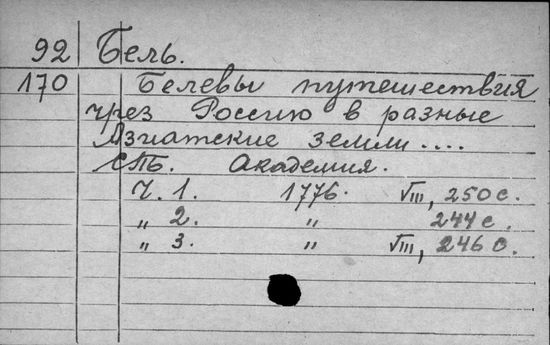 92 Бель.
170 Белевы путешествия
чрез Россию в разные
Азиатские земли ....
СПБ. Академия.
Ч. 1. 1776. VIII, 250 с.
„ 2. „ 244 с.
„ 3. „ VIII, 246 с.